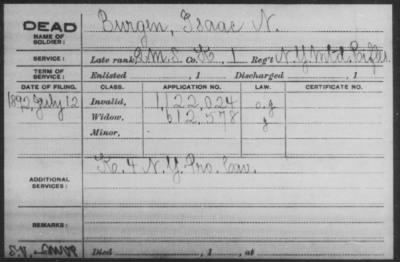 DEAD
NAME OF SOLDIER:
Burgen, Isaac N.
SERVICE:
Late rank, Q.M.S. Co. K, 1 Reg't N.Y. Mtd. Rifles
TERM OF SERVICE:
Enlisted , 1 Discharged , 1
DATE OF FILING. CLASS. APPLICATION NO. LAW. CERTIFICATE NO.
1892, July 12 Invalid, 1,122,024 o.g
Widow, 612,578 g
Minor,
ADDITIONAL SERVICES:
K. 4 N.Y. Pro. Cav.
REMARKS:
Died , 1 , at